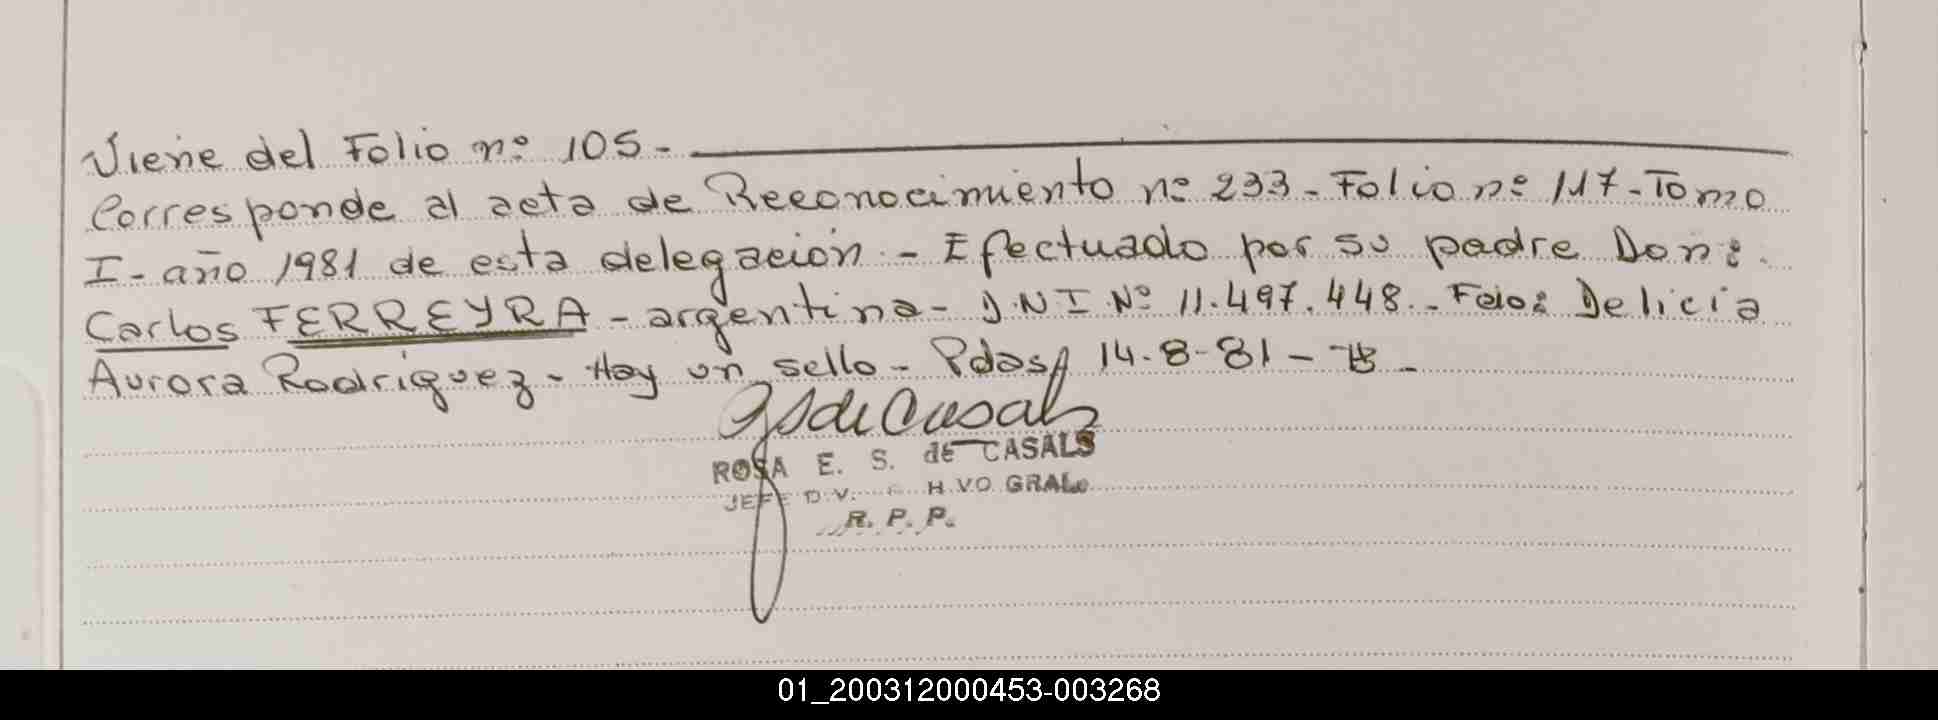 Viene del Folio nº 105-
Corresponde al acta de Reconocimiento nº 233-Folio nº 117-Tomo
I-año 1981 de esta delegación-Efectuado por su padre Don:
Carlos FERREYRA-argentina-D.N I Nº 11.497.448.-Fdo: Delicia
Aurora Rodriguez-Hay un sello-Pdas, 14-8-81-
ROSA E. S. de CASALS
JEFE DIV. H VO GRAL.
R. P. P.
01_200312000453-003268